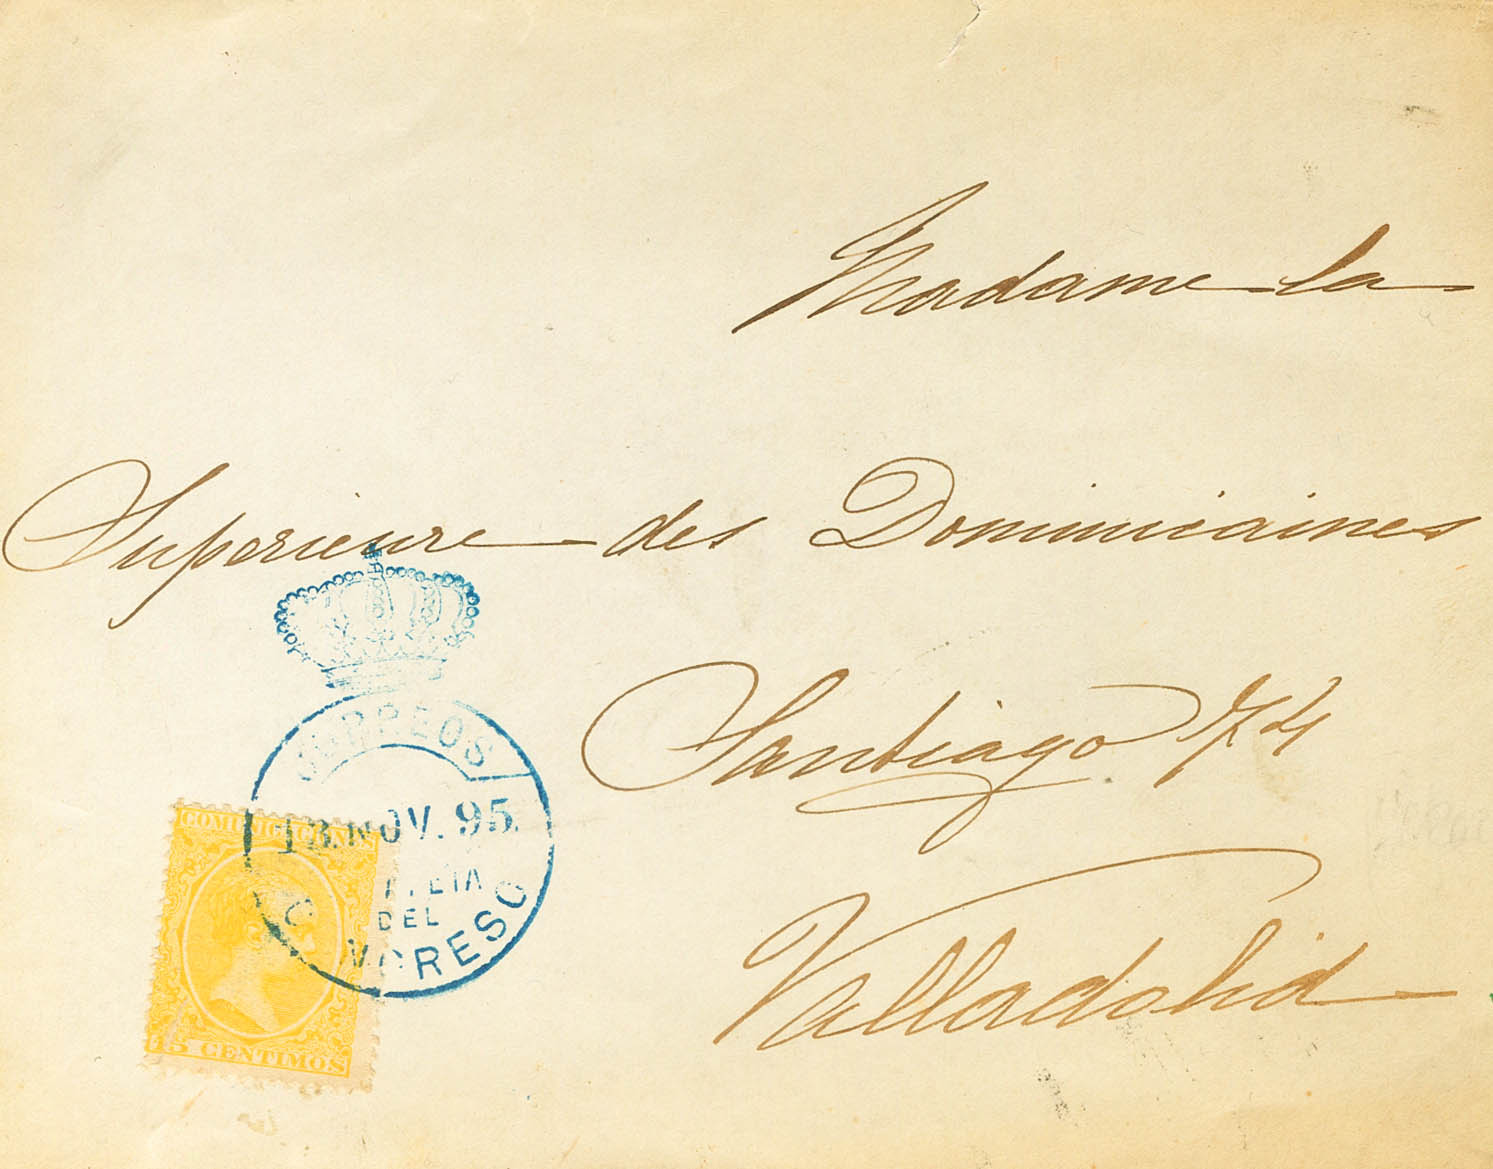 Madame la
Superieure des Dominicaines
Santiago 74
Valladolid
CORREOS
13.NOV.95.
DEL
CONGRESO
COMUNICACIONES
15 CENTIMOS